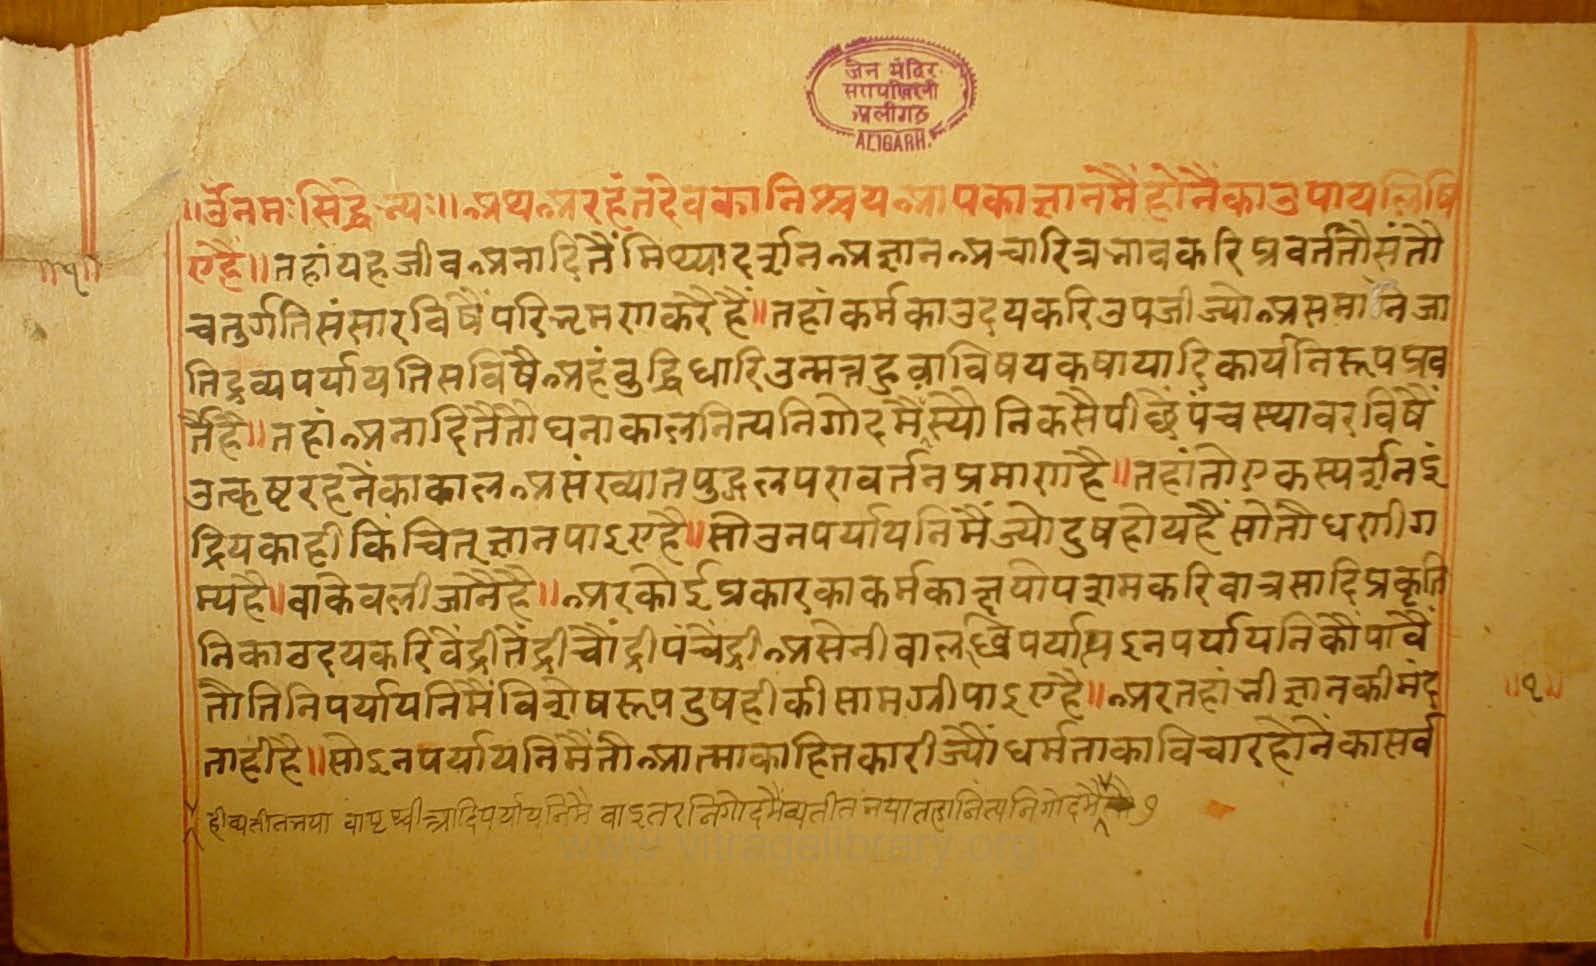 जैन मंदिर
अलीगढ
ALIGARH.
॥ॐ नमः सिद्धेभ्यः॥ अथ अरहंतदेवका निश्चय आपका ज्ञानमैं होनैंका उपाय लिषि
एहै॥ तहां यह जीव अनादितैं मिथ्यादर्शन अज्ञान अचारित्र भाव करि प्रवर्ततौ संतौ
चतुर्गति संसार विषैं परिभ्रमण करै है॥ तहां कर्मका उदय करि उपजी ज्यो असमान जा
ति द्रव्य पर्याय तिस विषै अहंबुद्धि धारि उन्मत्त हुवा विषय कषायादि कार्यनि रूप प्रव
र्तैहै॥ तहां अनादितैं तौ घनाकाल नित्यनिगोदमैं स्यौ निकसै पीछैं पंच स्थावर विषैं
उत्कृष्ट रहनैंका काल असंख्यात पुद्गल परावर्तन प्रमाण है॥ तहां तौ एक स्पर्शन इं
द्रियका ही किंचित् ज्ञान पाइए है॥ सो उन पर्यायनिमैं ज्यो दुष होय है सो तौ
म्य है॥ वा केवली जानै है॥ अर कोई प्रकार का कर्मका क्षयोपशम करि वा त्रसादि प्रकृति
निका उदय करि वेंद्री तेंद्री चौंद्री पंचेंद्री असेनी वा लब्धि पर्याप्त इन पर्यायनिकौं पावै
तौ तिनि पर्यायनिमैं विशेष रूप दुषही की सामग्री पाइए है॥ अर तहां भी ज्ञान की मंद
ता ही है॥ सो इन पर्यायनिमैं तौ आत्माका हितकारी ज्यौ धर्म ताका विचार होनैंका सर्व
ही व्यतीत भया वा पृथ्वी आदि पर्यायनिमै वा इतर निगोदमैं व्यतीत भया तहां नित्य निगोदमैं
॥१॥
www.vitragelibrary.org